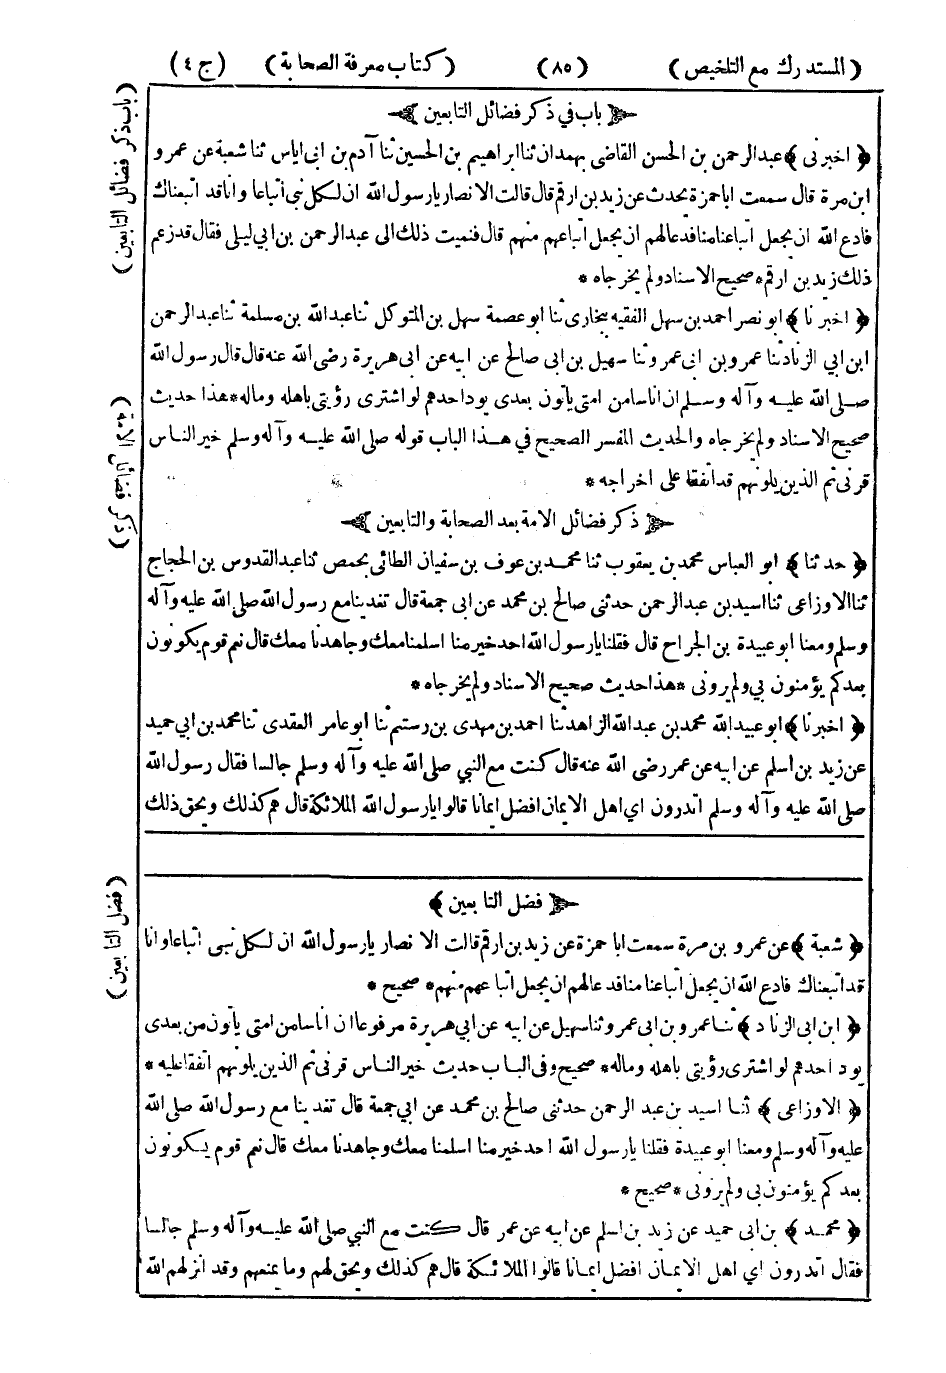 ( المستدرك مع التلخيص ) (٨٥) ( كتاب معرفة الصحابة ) ( ج ٤ )
﴿ باب في ذكر فضائل التابعين ﴾
﴿ اخبرنى ﴾ عبد الرحمن بن الحسن القاضى بهمدان ثنا ابراهيم بن الحسين ثنا آدم بن ابى اياس ثنا شعبة عن عمرو
ابن مرة قال سمعت ابا حمزة يحدث عن زيد بن ارقم قال قالت الانصار يا رسول الله ان لكل نبى أتباعا وانا قد اتبعناك
فادع الله ان يجعل اتباعنا منا فدعا لهم ان يجعل اتباعهم منهم قال فنميت ذلك الى عبد الرحمن بن ابي ليلى فقال قد زعم
ذلك زيد بن ارقم * صحيح الاسناد ولم يخرجاه *
﴿ اخبرنا ﴾ ابو نصر احمد بن سهل الفقيه ببخارى ثنا ابو عصمة سهل بن المتوكل ثنا عبد الله بن مسلمة ثنا عبد الرحمن
ابن ابي الزناد ثنا عمرو بن ابى عمرو ثنا سهيل بن ابى صالح عن ابيه عن ابى هريرة رضى الله عنه قال قال رسول الله
صلى الله عليه وآله وسلم ان اناسا من امتى يأتون بعدى يود احدهم لو اشترى رؤيتى باهله وماله * هذا حديث
صحيح الاسناد ولم يخرجاه والحديث المفسر الصحيح في هذا الباب قوله صلى الله عليه وآله وسلم خير الناس
قرنى ثم الذين يلونهم قد اتفقا على اخراجه *
﴿ ذكر فضائل الامة بعد الصحابة والتابعين ﴾
﴿ حدثنا ﴾ ابو العباس محمد بن يعقوب ثنا محمد بن عوف بن سفيان الطائى بحمص ثنا عبد القدوس بن الحجاج
ثنا الاوزاعى ثنا اسيد بن عبد الرحمن حدثنى صالح بن محمد عن ابى جمعة قال تغدينا مع رسول الله صلى الله عليه وآله
وسلم ومعنا ابو عبيدة بن الجراح قال فقلنا يا رسول الله احد خير منا اسلمنا معك وجاهدنا معك قال نعم قوم يكونون
بعدكم يؤمنون بي ولم يرونى * هذا حديث صحيح الاسناد ولم يخرجاه *
﴿ اخبرنا ﴾ ابو عبد الله محمد بن عبد الله الزاهد ثنا احمد بن مهدى بن رستم ثنا ابو عامر العقدى ثنا محمد بن ابي حميد
عن زيد بن اسلم عن ابيه عن عمر رضى الله عنه قال كنت مع النبي صلى الله عليه وآله وسلم جالسا فقال رسول الله
صلى الله عليه وآله وسلم اتدرون اي اهل الايمان افضل ايمانا قالوا يا رسول الله الملائكة قال هم كذلك ويحق ذلك
﴿ فضل التابعين ﴾
﴿ شعبة ﴾ عن عمرو بن مرة سمعت ابا حمزة عن زيد بن ارقم قالت الانصار يا رسول الله ان لكل نبى اتباعا وانا
قد اتبعناك فادع الله ان يجعل أتباعنا منا فدعا لهم ان يجعل اتباعهم منهم * صحيح *
﴿ ابن ابى الزناد ﴾ ثنا عمرو بن ابى عمرو ثنا سهيل عن ابيه عن ابي هريرة مرفوعا ان اناسا من امتى يأتون من بعدى
يود احدهم لو اشترى رؤيتى باهله وماله * صحيح وفى الباب حديث خير الناس قرنى ثم الذين يلونهم اتفقا عليه *
﴿ الاوزاعى ﴾ ثنا اسيد بن عبد الرحمن حدثنى صالح بن محمد عن ابي جمعة قال تغدينا مع رسول الله صلى الله
عليه وآله وسلم ومعنا ابو عبيدة فقلنا يا رسول الله احد خير منا اسلمنا معك وجاهدنا معك قال نعم قوم يكونون
بعدكم يؤمنون بى ولم يرونى * صحيح *
﴿ محمد ﴾ بن ابى حميد عن زيد بن اسلم عن ابيه عن عمر قال كنت مع النبي صلى الله عليه وآله وسلم جالسا
فقال اتدرون اي اهل الايمان افضل ايمانا قالوا الملائكة قال هم كذلك ويحق لهم وما يمنعهم وقد انزلهم الله
( باب ذكر فضائل التابعين )
( ذكر فضائل الامة )
( فضل التابعين )